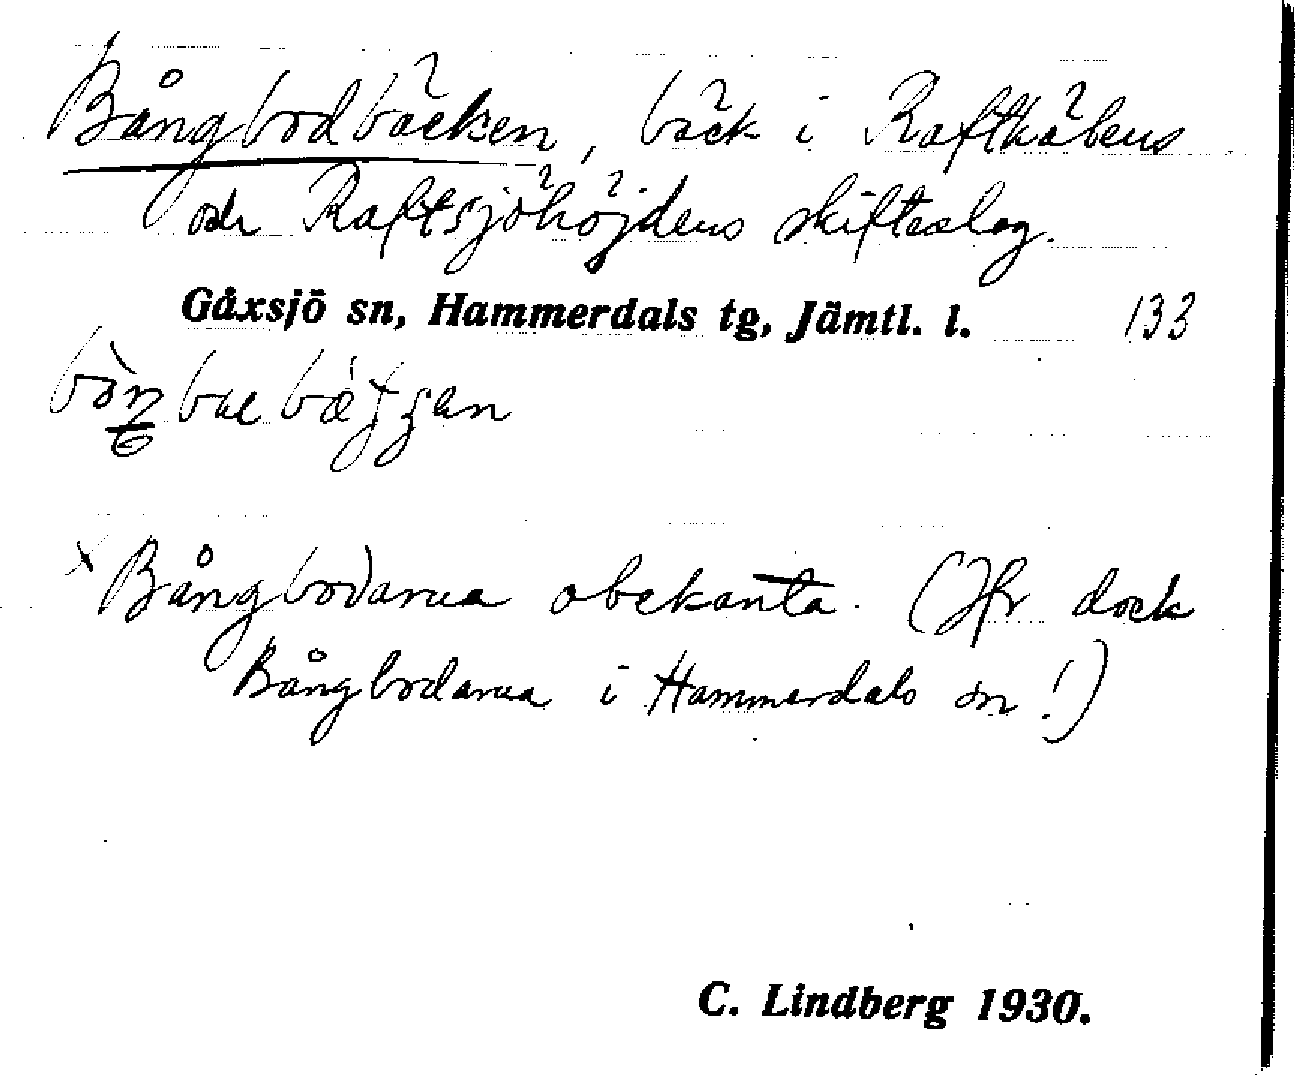 Bångbodbäcken, bäck i Raftkälens
och Raftsjöhöjdens skifteslag.
Gåxsjö sn, Hammerdals tg, Jämtl. l. 133
x Bångbodarna obekanta. (Jfr dock
Bångbodarna i Hammerdals sn!)
C. Lindberg 1930.